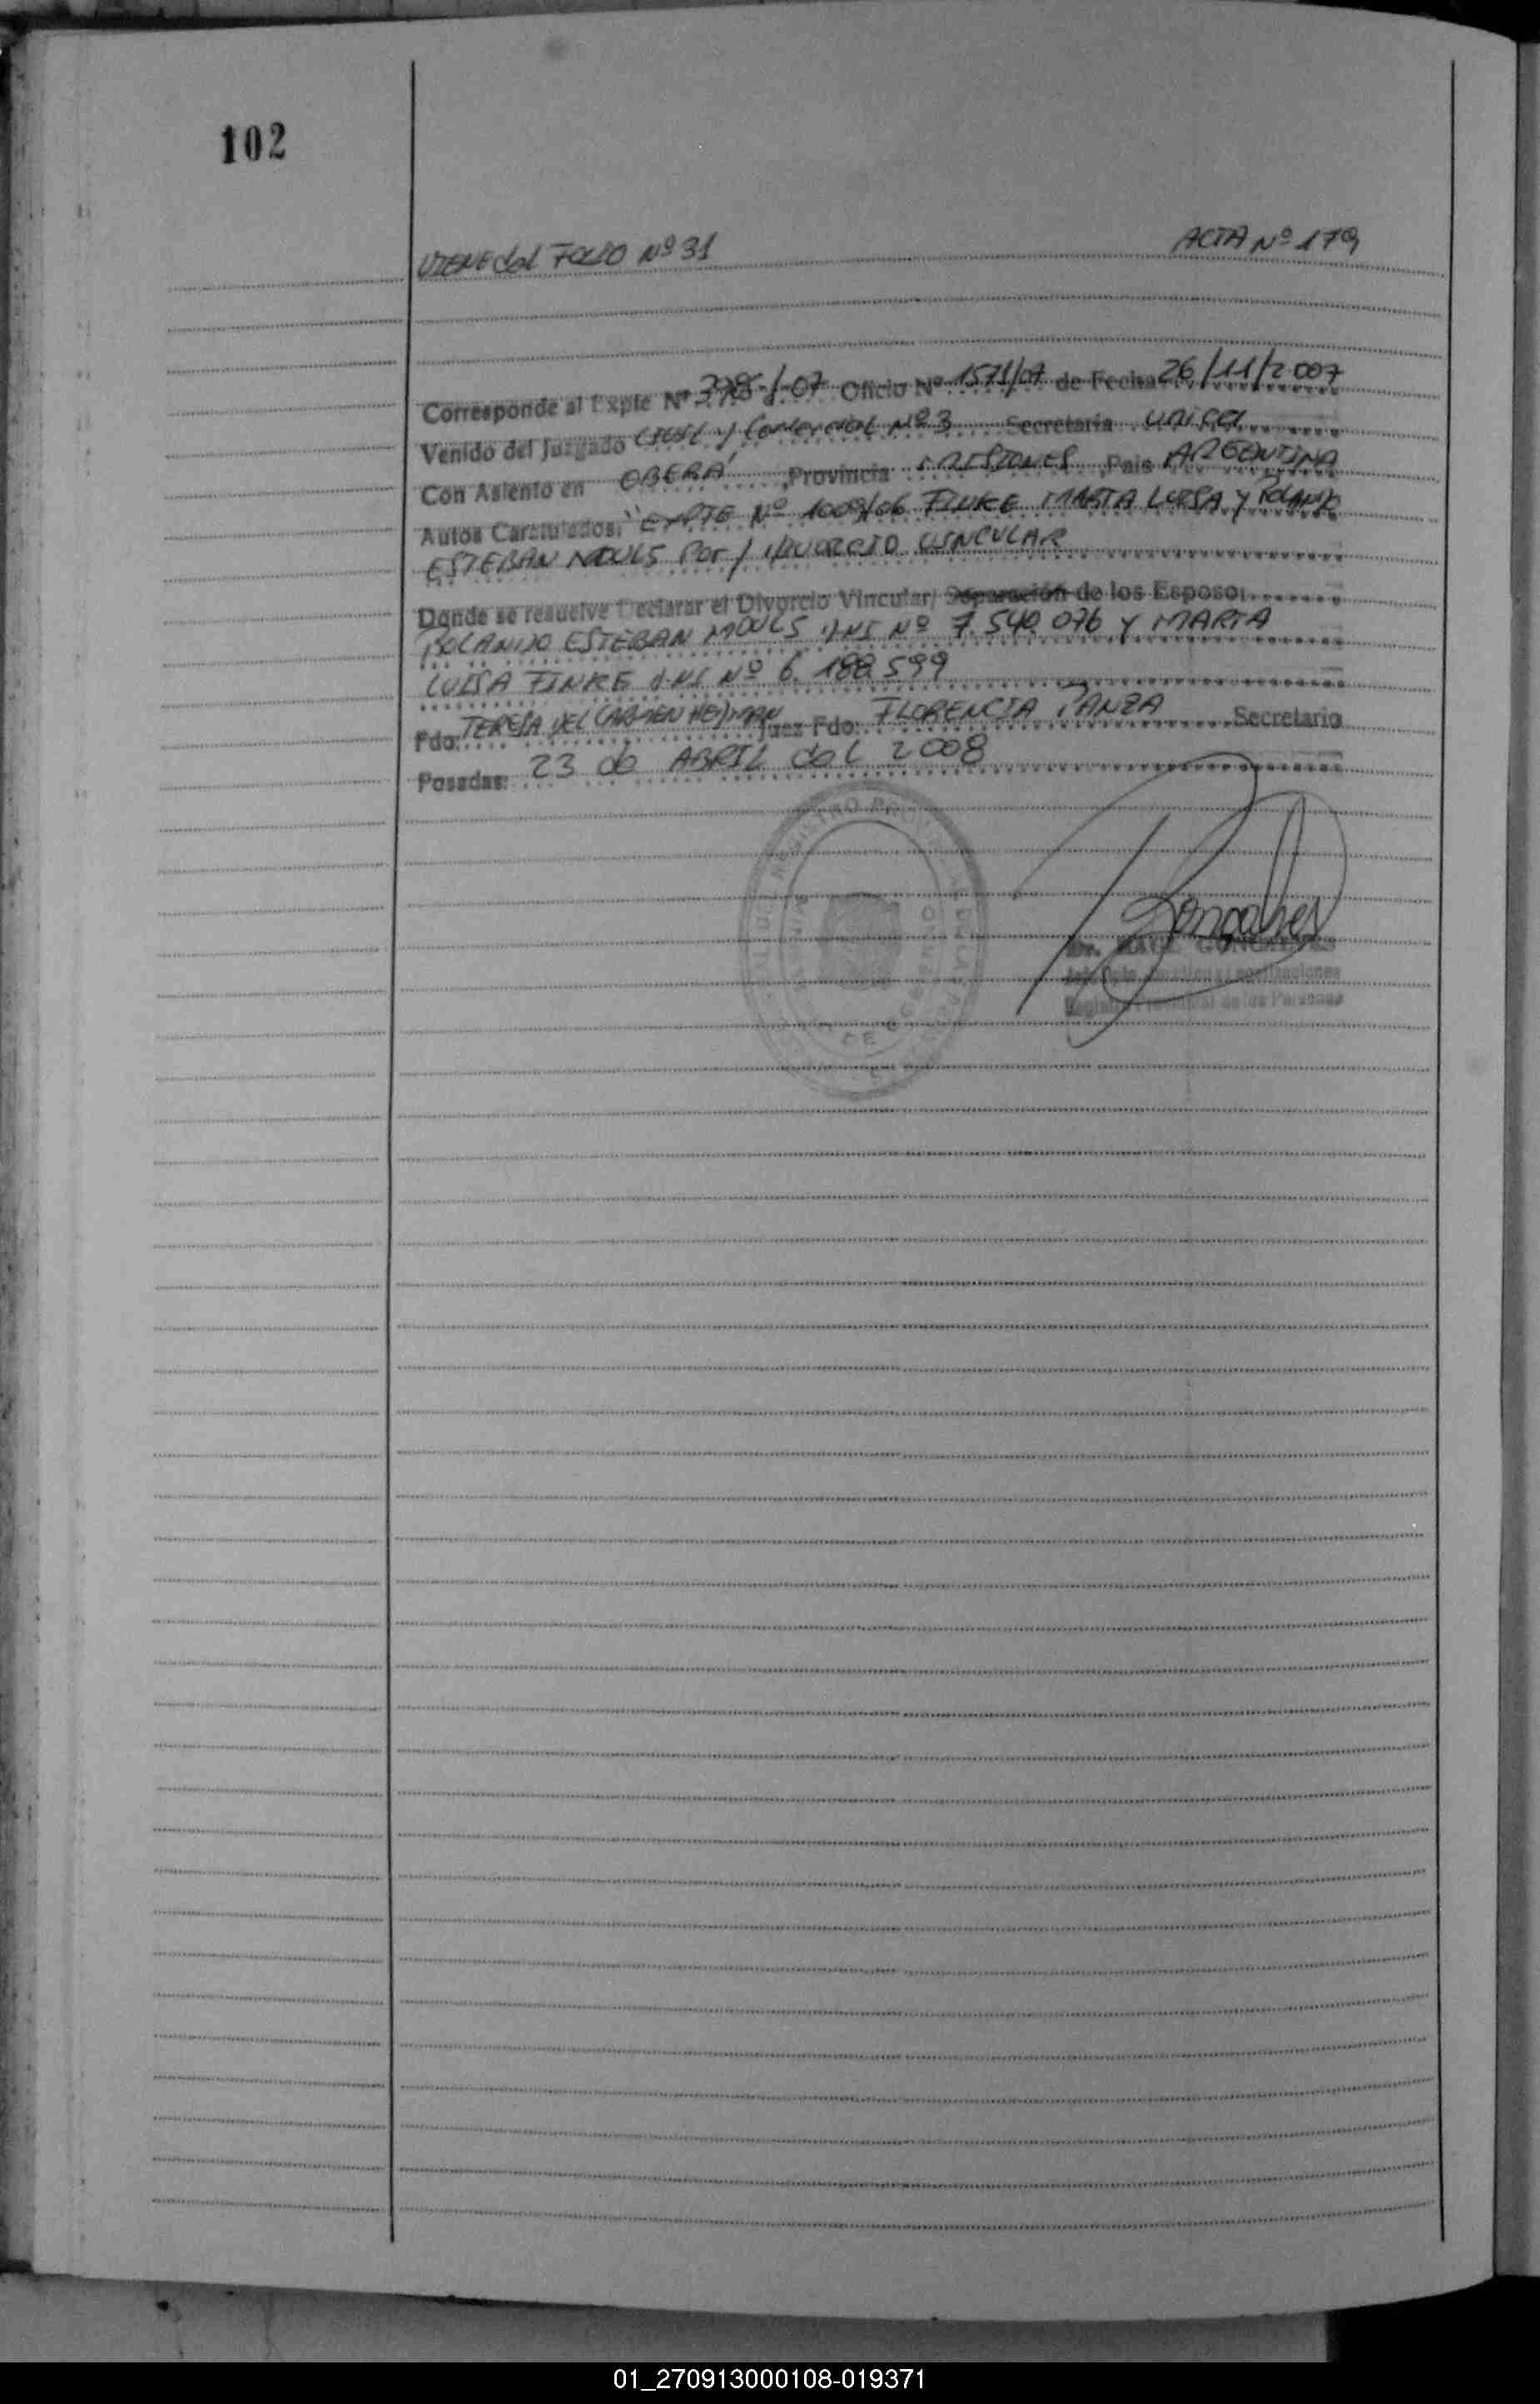 102
VIENE del FOLIO Nº 31 ACTA Nº 179
Corresponde al Expte Nº 3785-J-07 Oficio Nº 1571/07 de Fecha 26/11/2007
Venido del Juzgado CIVIL y Comercial Nº 3 Secretaria UNICA
Con Asiento en OBERA ,Provincia MISIONES ,Pais ARGENTINA
Autos Caratulados: "EXPTE Nº 1009/06 FINKE MARTA LUISA Y ROLANDO
ESTEBAN POr / DIVORCIO VINCULAR
Donde se resuelve Declarar el Divorcio Vincular/ Separación de los Esposos
ROLANDO ESTEBAN DNI Nº 7.540.076 Y MARTA
LUISA FINKE DNI Nº 6.188.599
Fdo: TERESA DEL CARMEN Juez Fdo: FLORENCIA PANZA Secretario
Posadas: 23 de ABRIL del 2008
Goncalves
Dr. GONCALVES
Registro Provincial de las Personas
01_270913000108-019371